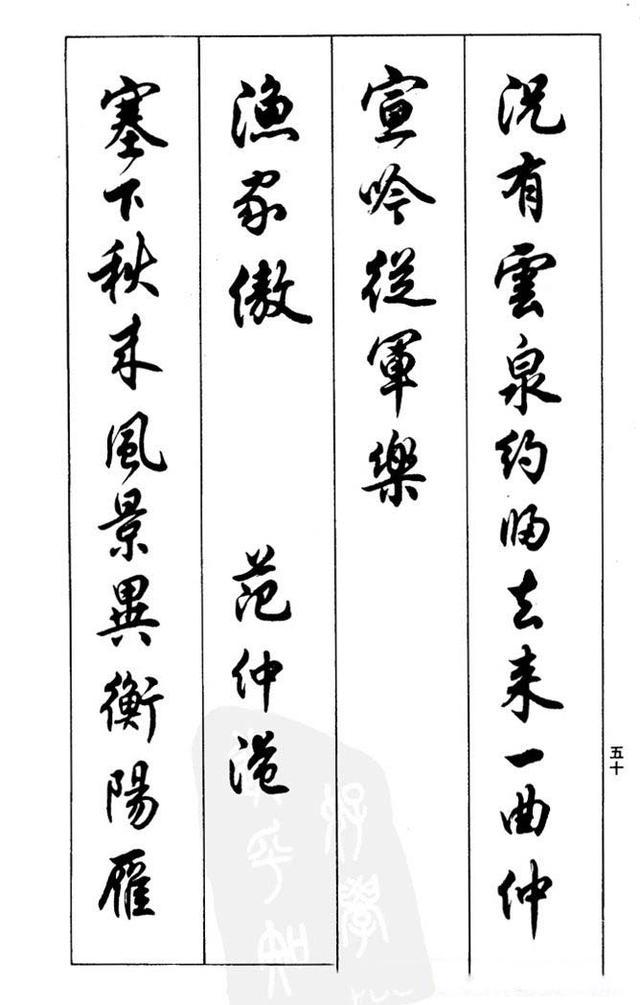 況有雲泉約歸去来一曲仲
宣吟從軍樂
漁家傲 范仲淹
塞下秋来風景異衡陽雁
五十